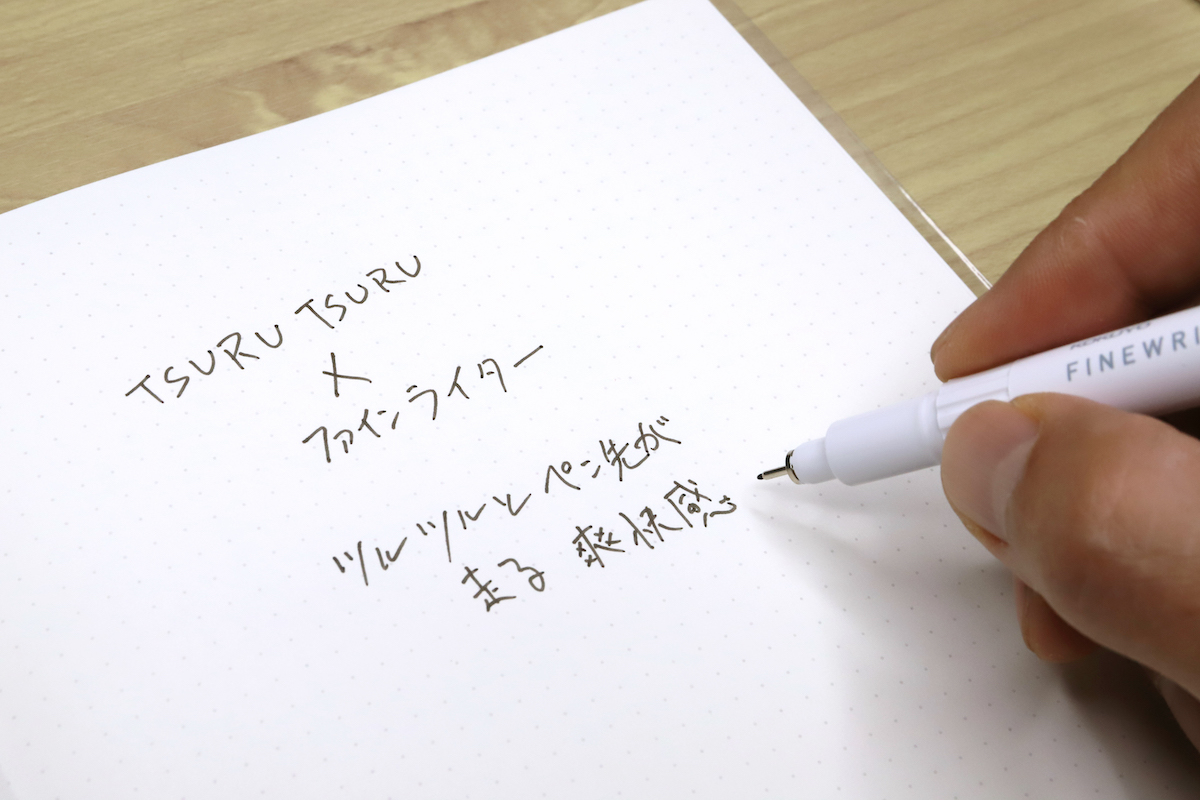 TSURU TSURU
×
ファインライター
ツルツルとペン先が
走る 爽快感
KOKUYO
FINEWRI